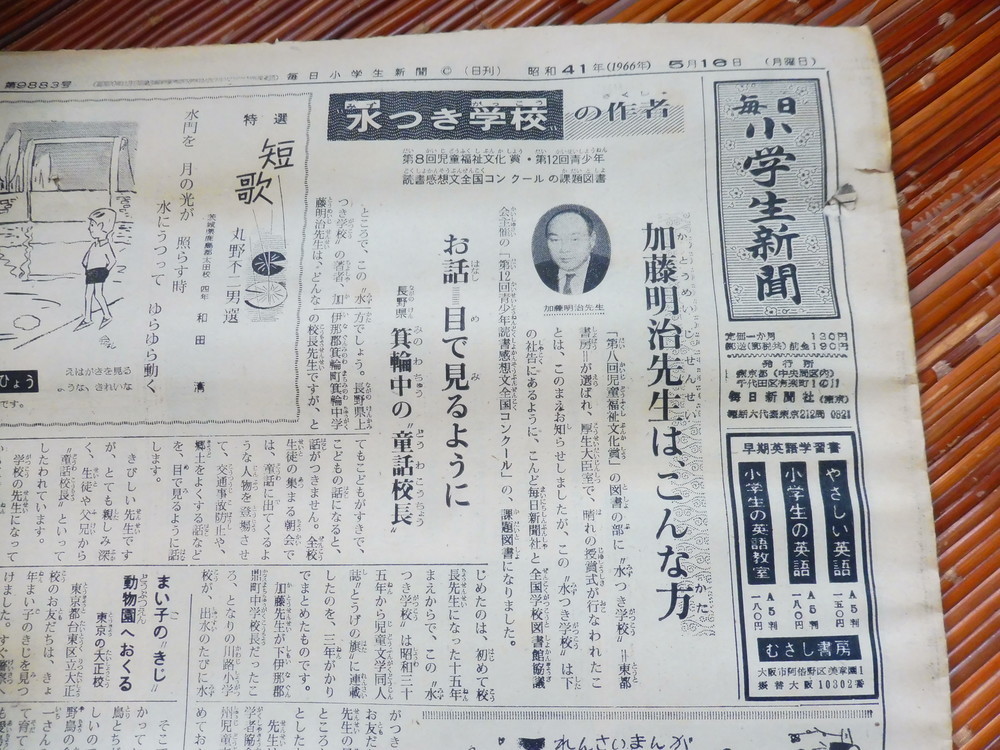 第9883号
毎日小学生新聞 © (日刊) 昭和41年(1966年) 5月16日 (月曜日)
毎日小学生新聞
定価一か月 130円
郵送(郵税共)前金190円
発行所
東京都(中央局区内)
千代田区有楽町1の11
毎日新聞社(東京)
電話大代表東京212局 0321
早期英語学習書
やさしい英語 A5判 一五〇円
小学生の英語 A5判 一八〇円
小学生の英語教室 A5判 一八〇円
むさし書房
大阪市阿倍野区美章園1
振替大阪10302番
"水つき学校"の作者
第8回児童福祉文化賞・第12回青少年
読書感想文全国コンクールの課題図書
加藤明治先生は、こんな方
加藤明治先生
「第八回児童福祉文化賞」の図書の部に〝水つき学校〟=東都
書房=が選ばれ、厚生大臣室で、晴れの授賞式が行なわれたこ
とは、このまえお知らせしましたが、この〝水つき学校〟は下
の社告にあるように、こんど毎日新聞社と全国学校図書館協議
会主催の「第12回青少年読書感想文全国コンクール」の、課題図書になりました。
お話=目で見るように
長野県 箕輪中の〝童話校長〟
ところで、この〝水
つき学校〟の著者、加
藤明治先生は、どんな
方でしょう。長野県上
伊那郡箕輪町箕輪中学
の校長先生ですが、と
てもこどもがすきで、
こどもの話になると、
話がつきません。全校
生徒の集まる朝会で
は、童話に出てくるよ
うな人物を登場させ
て、交通事故防止や、
郷土をよくする話など
を、目で見るように話
します。
きびしい先生です
が、とても親しみ深
く、生徒や父兄から
〝童話校長〟といって
したわれています。
学校の先生になって
じめたのは、初めて校
長先生になった十五年
まえからで、この〝水
つき学校〟は昭和三十
五年から児童文学同人
誌〝とうげの旗〟に連載
したのを、三年がかり
でまとめたものです。
加藤先生が下伊那郡
竜町中学校長だったこ
ろ、となりの川路小学
校が、出水のたびに水
まい子の〝きじ〟
動物園へおくる
東京の大正校
東京都台東区立大正
校のお友だちは、きょ
年まい子のきじを見つ
けました。
特選
短歌
丸野不二男選
茨城県鹿島郡太田校 四年 和田 清
水門を 月の光が 照らす時
水にうつって ゆらゆら動く
ひょう
えはがきを見る
ような、きれいな
です。
れんさいまんが